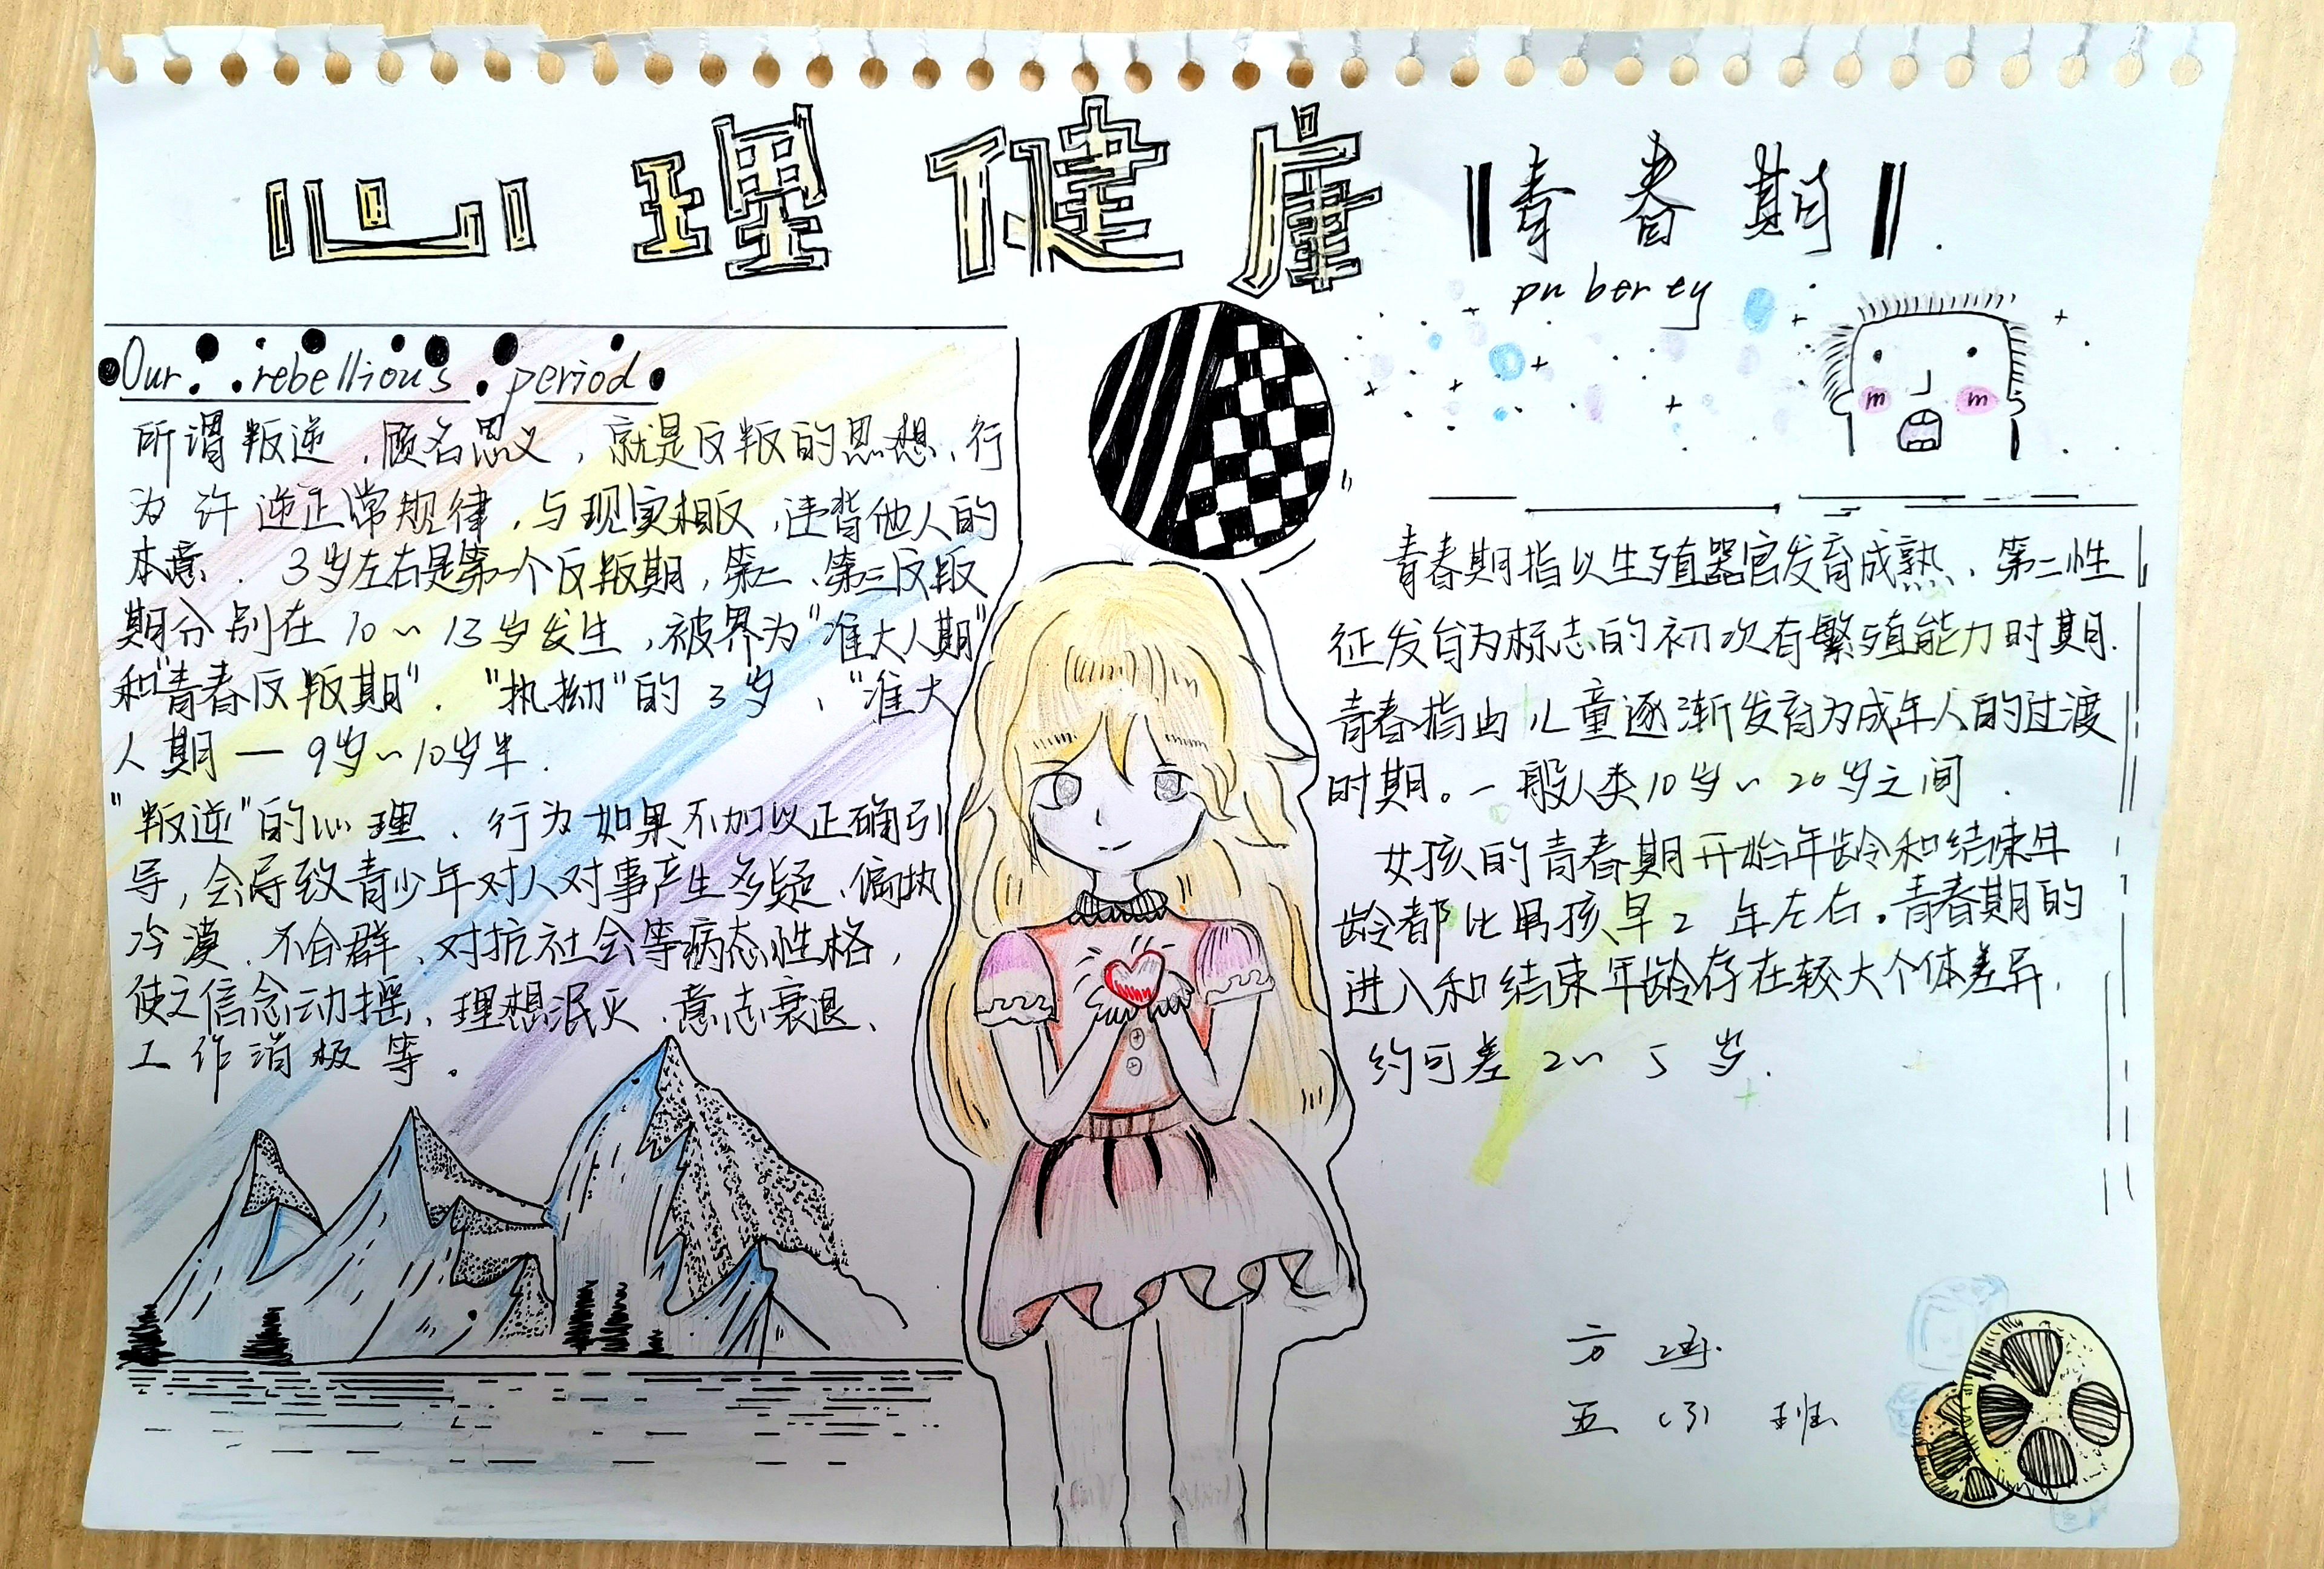 心理健康
青春期
puberey
Our rebellious period
所谓叛逆,顾名思义,就是反叛的思想、行
为 许逆正常规律,与现实相反,违背他人的
本意. 3岁左右是第一个反叛期,第二、第三反叛
期分别在10~13岁发生,被界为"准大人期"
和"青春反叛期". "执拗"的3岁、"准大
人期—9岁~10岁半.
"叛逆"的心理、行为如果不加以正确引
导,会导致青少年对人对事产生多疑、偏执
冷漠、不合群、对抗社会等病态性格,
使之信念动摇、理想泯灭、意志衰退、
工作消极等.
青春期指以生殖器官发育成熟、第二性
征发育为标志的初次有繁殖能力时期.
青春指由儿童逐渐发育为成年人的过渡
时期。一般人类10岁~20岁之间.
女孩的青春期开始年龄和结束年
龄都比男孩早2年左右。青春期的
进入和结束年龄存在较大个体差异.
约可差2~5岁.
方
五(3)班